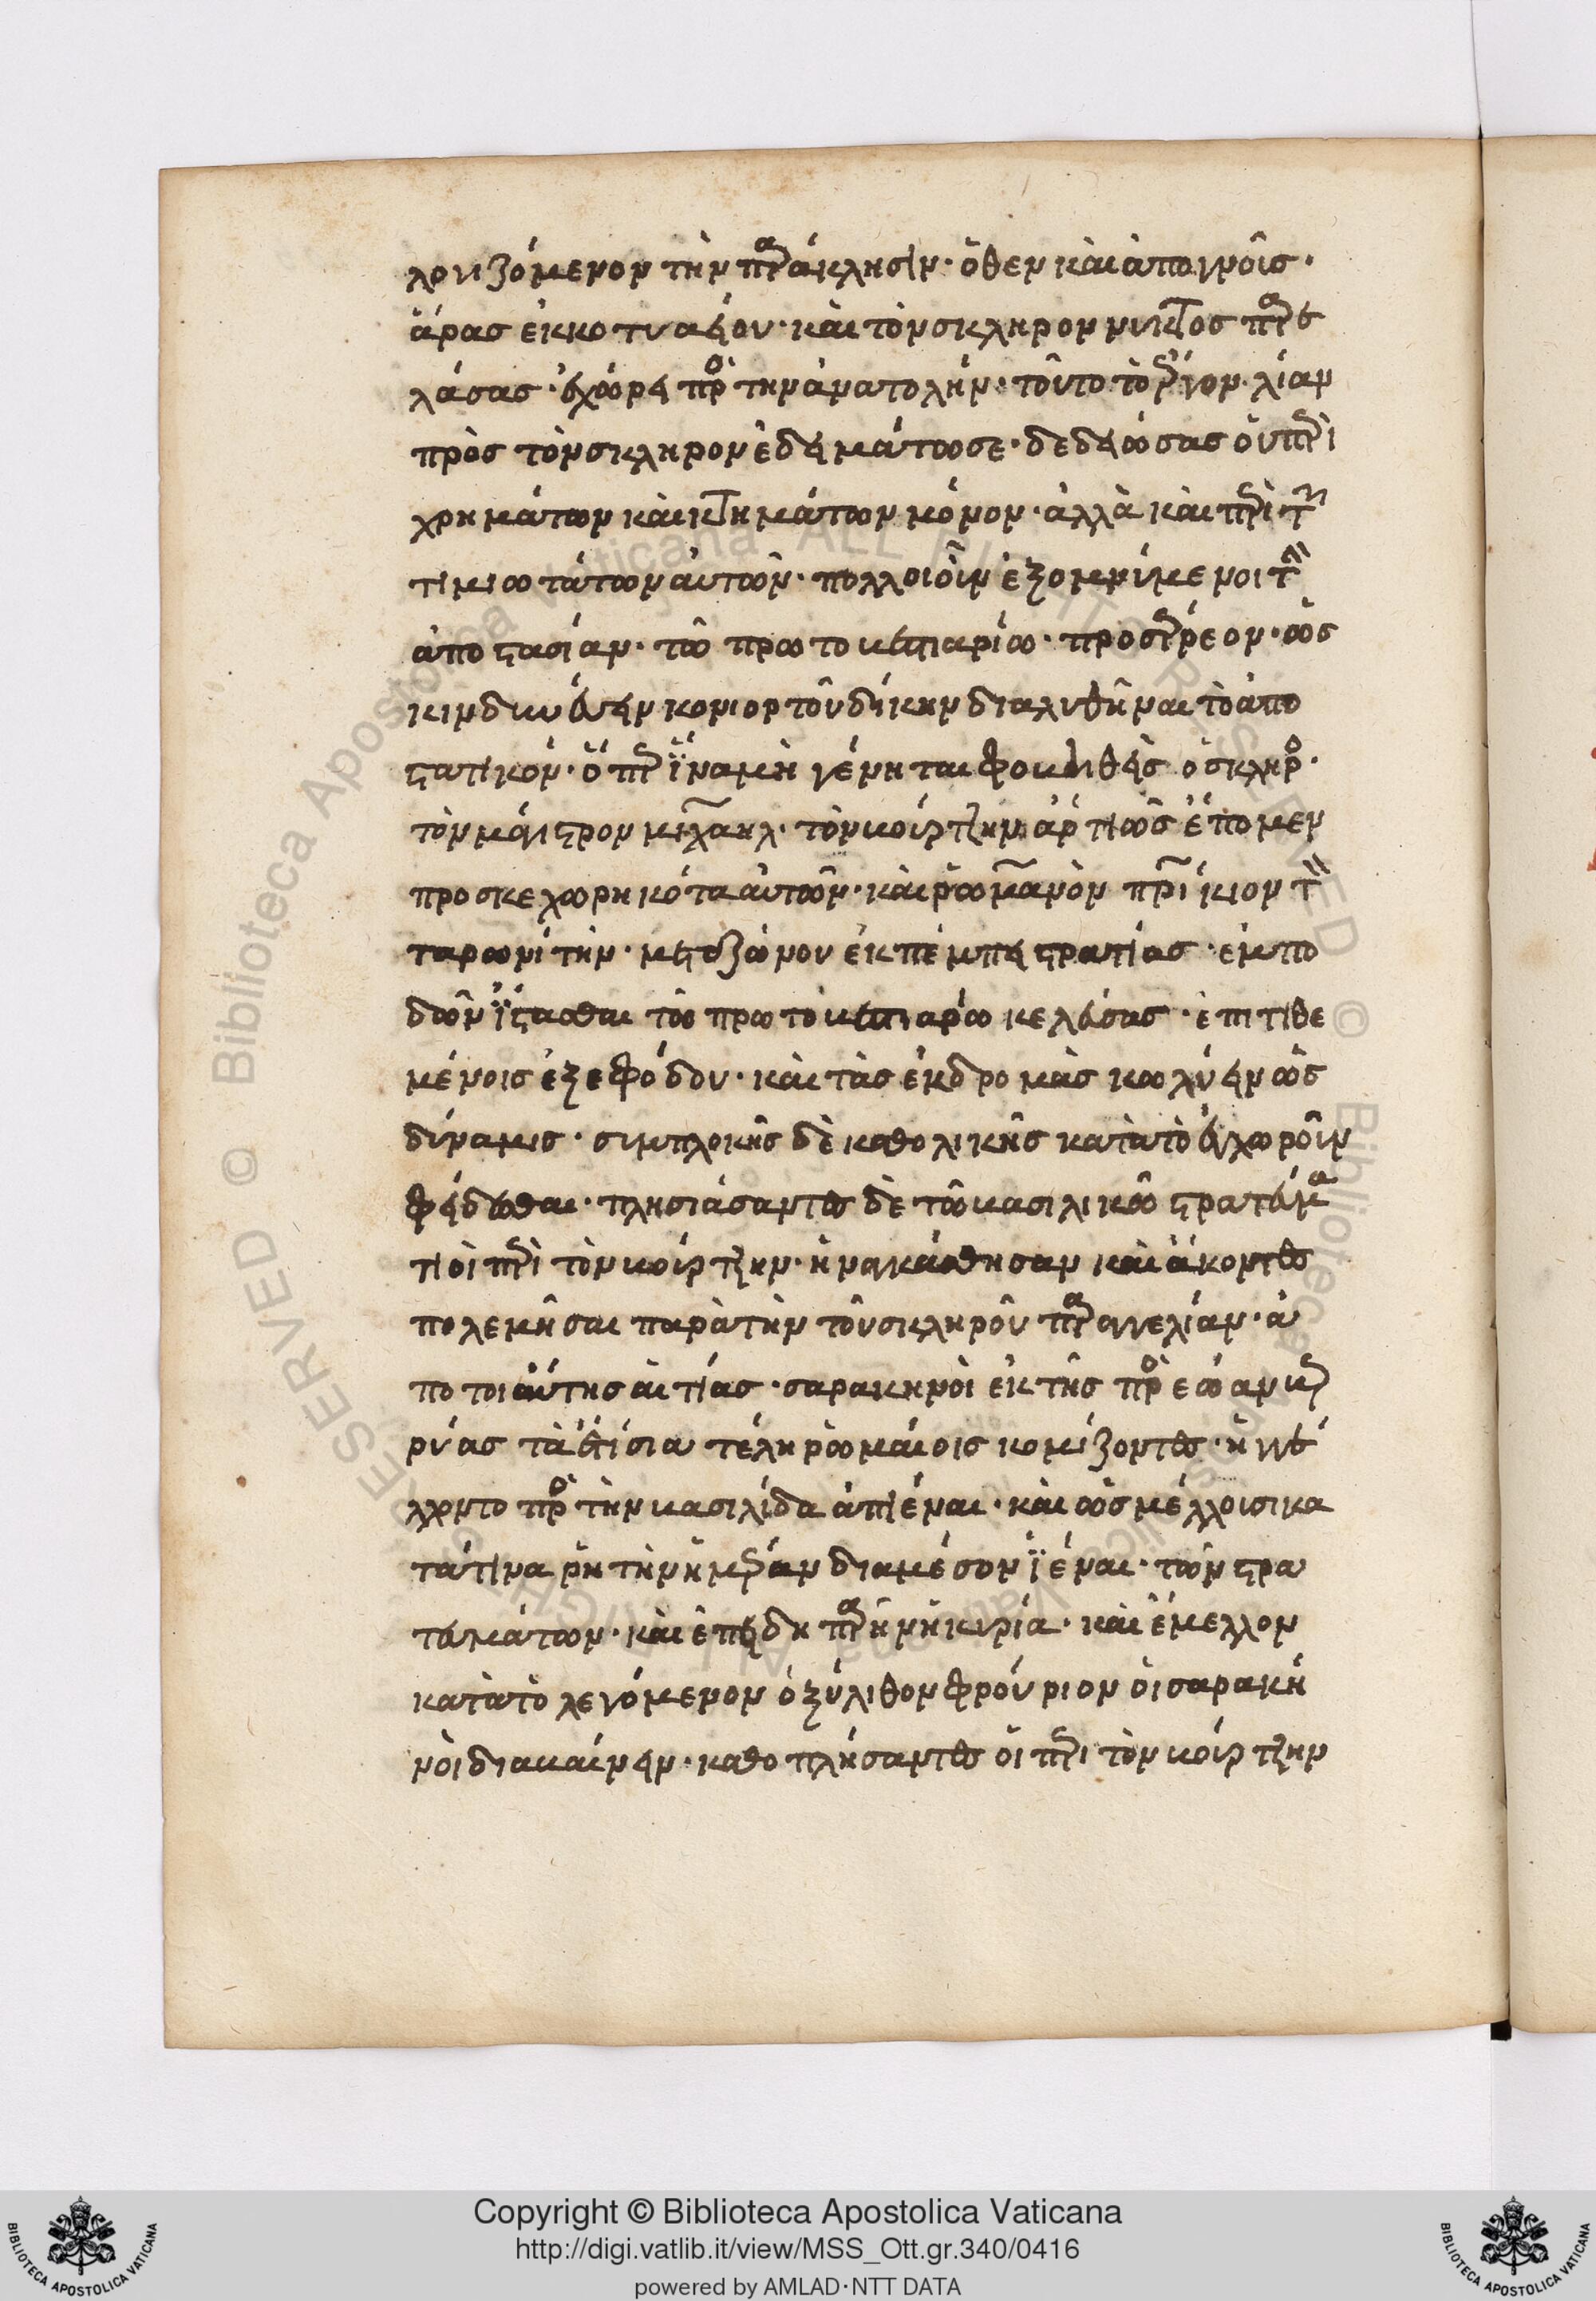 λογιζόμενον τὴν παράκλησιν· ὅθεν καὶ ἀπογνοῖσ·
ἄρασ ἐκ κοτυαείου· καὶ τὸν σκληρον νυκτοσ παρε
λάσασ· ἐχώρει πρὸσ την ἀνατολήν· τοῦτο τὸ ἔργον λίαν
πρὸσ τὸν σκληρον ἐδειμάτωσε· δεδειώσασ οὐ περὶ
χρημάτων καὶ κτημάτων μόνον· ἀλλὰ καὶ περὶ τῶν
τιμιωτάτων αὐτῶν· πολλοὶ οὖν ἐξομνύμενοι τὴν
ἀποστασίαν· τῶ πρωτοβεστιαρίω· προσέρεον· ὡσ
κινδυνεύειν κονιορτοῦ δίκην διαλυθῆναι τὸ ἀπο
στατικόν· ὅπερ ἵνα μὴ γένηται φοβηθεὶσ ὁ σκληρὸσ·
τὸν μάγιστρον μιχαηλ· τὸν βούρτζην ἀρτίωσ εἵπομεν
προσκεχωρηκότα αὐτῶν· καὶ ῥωμανὸν πατρίκιον τὸν
ταρωνίτην· μετ᾽ εὐζώνου ἐκπέμπει στρατιᾶσ· ἐμπο
δῶν ἵστασθαι τῶ πρωτοβεστιαρίω κελεύσασ· ἐπιτιθε
μένοισ ἐξ ἐφόδου· καὶ τὰσ ἐκδρομὰσ κωλύειν ὡσ
δύναμισ· συμπλοκῆσ δὲ καθολικῆσ κατὰ τὸ ἐγχωροῦν
φείδεσθαι· πλησιάσαντεσ δὲ τῶ βασιλικῶ στρατεύμα
τι οἱ περὶ τὸν βούρτζην· ἠναγκάσθησαν καὶ ἄκοντεσ
πολεμῆσαι παρὰ τὴν τοῦ σκληροῦ παραγγελίαν· ἀ
πὸ τοιαύτησ αἰτίασ· σαρακηνοὶ ἐκ τῆσ πρὸσ ἑώαν βερ
ρύασ τὰ ἐτίσια τέλη ῥωμαίοισ κομίζοντεσ· ἠγγέ
λλοντο πρὸσ τὴν βασιλίδα ἀπιέναι· καὶ ὡσ μέλλοισι κα
τά τινα ῥητὴν ἡμέραν διαμέσον ἰέναι· τῶν στρα
τευμάτων· καὶ ἐπειδη παρῆν ἡ κυρία· καὶ ἔμελλον
κατὰ τὸ λεγόμενον ὀξύλιθον φρούριον οἱ σαρακη
νοὶ διαβαίνειν· καθοπλήσαντεσ οἱ περὶ τὸν βούρτζην
Copyright © Biblioteca Apostolica Vaticana
http://digi.vatlib.it/view/MSS_Ott.gr.340/0416
powered by AMLAD·NTT DATA